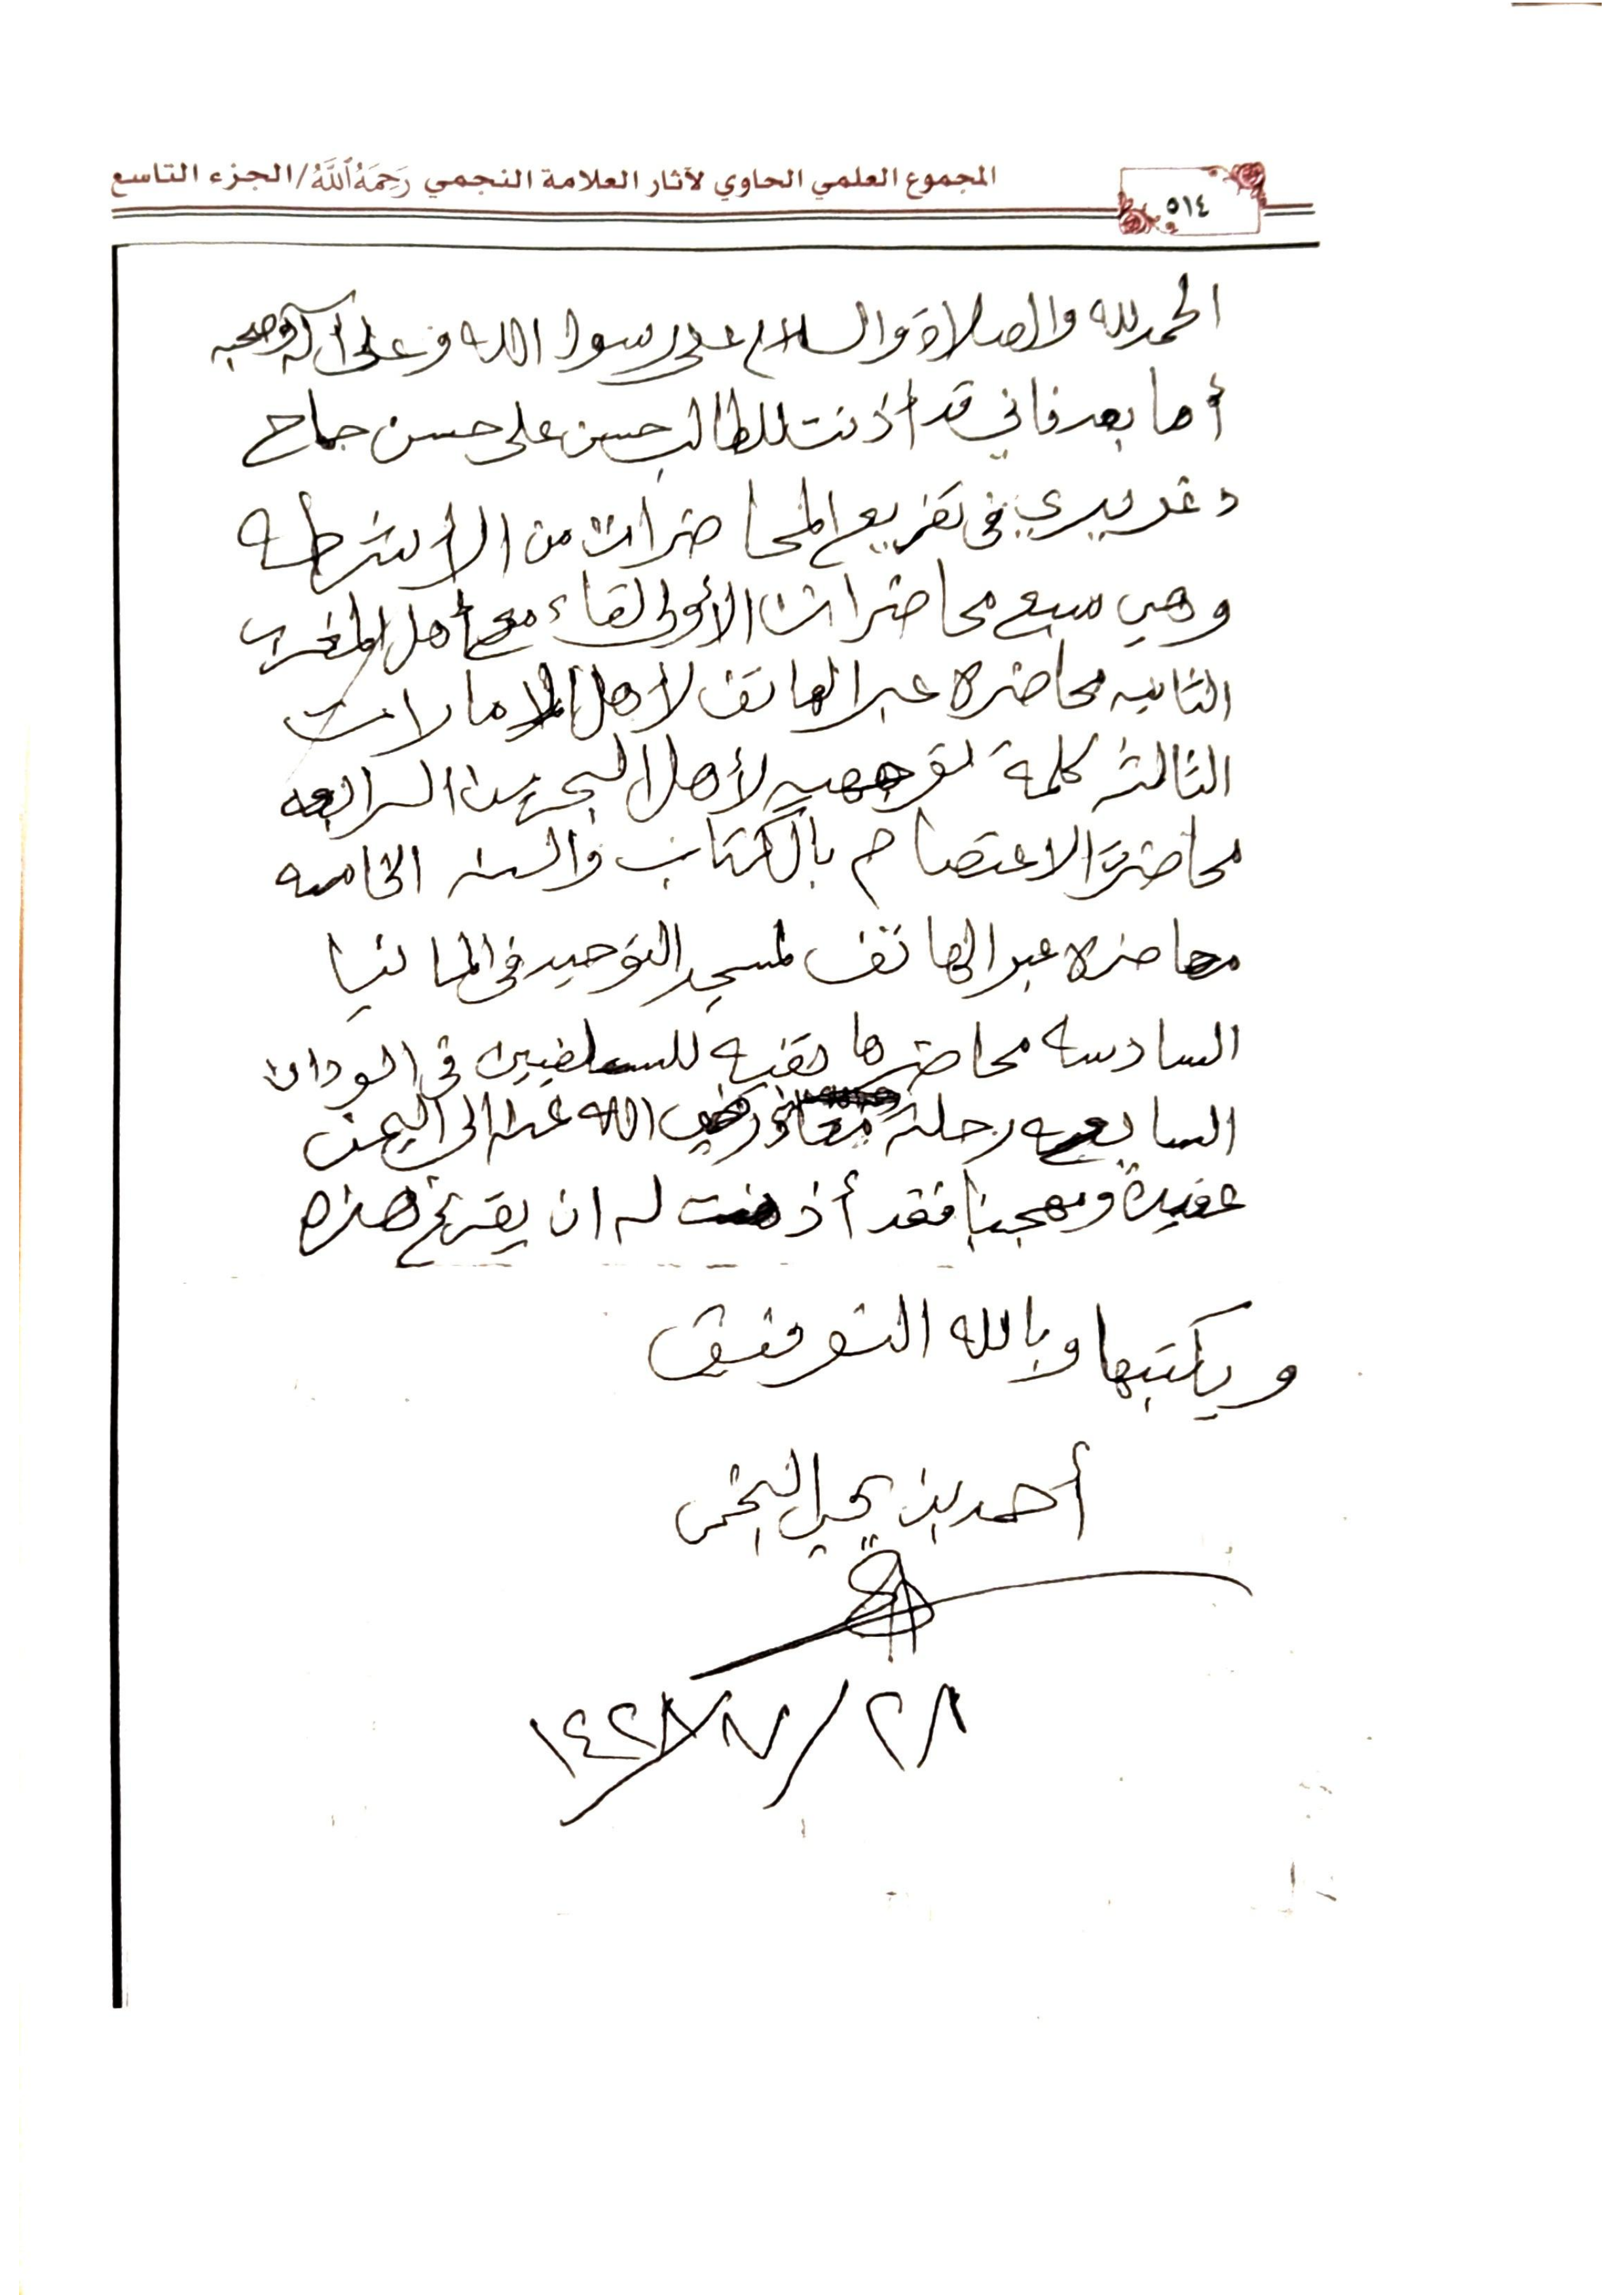 المجموع العلمي الحاوي لآثار العلامة النجمي رَحِمَهُ ٱللَّهُ / الجزء التاسع
٥١٤
الحمد لله والصلاة والسلام على رسول الله وعلى آله وصحبه
أما بعد فاني قد أذنت للطالب حسن على حسن جماح
دغريري في تفريع المحاضرات من الأشرطه
وهي سبع محاضرات الأولى لقاء مع أهل المغرب
الثانيه محاضرة عبر الهاتف لأهل الإمارات
الثالثه كلمة توجيهيه لأهل البحرين الرابعه
محاضرة الاعتصام بالكتاب والسنه الخامسه
محاضره عبر الهاتف لمسجد التوحيد في المانيا
السادسه محاضرها للسلفيين في السودان
السابعه رحلة معاذ رضي الله عنه الى اليمن
عقيدة ومنهجا فقد أذنت له ان يفرغ هذه
ويكتبها وبالله التوفيق
أحمد بن يحيى النجمي
٢٨ / ٧ / ١٤٢٨